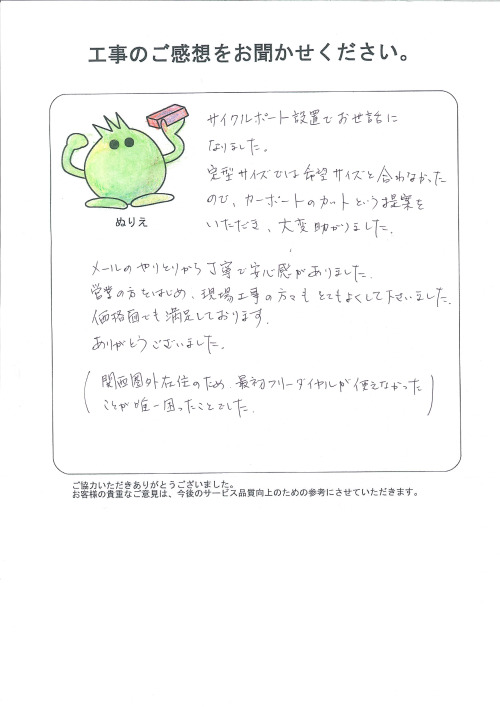 工事のご感想をお聞かせください。
サイクルポート設置でお世話に
なりました。
定型サイズでは希望サイズと合わなかった
ので、カーポートのカットという提案を
いただき、大変助かりました。
ぬりえ
メールのやりとりから丁寧で安心感がありました。
営業の方をはじめ、現場工事の方々もとてもよくして下さいました。
価格面でも満足しております。
ありがとうございました。
(関西圏外在住のため、最初フリーダイヤルが使えなかった
ことが唯一困ったことでした。)
ご協力いただきありがとうございました。
お客様の貴重なご意見は、今後のサービス品質向上のための参考にさせていただきます。